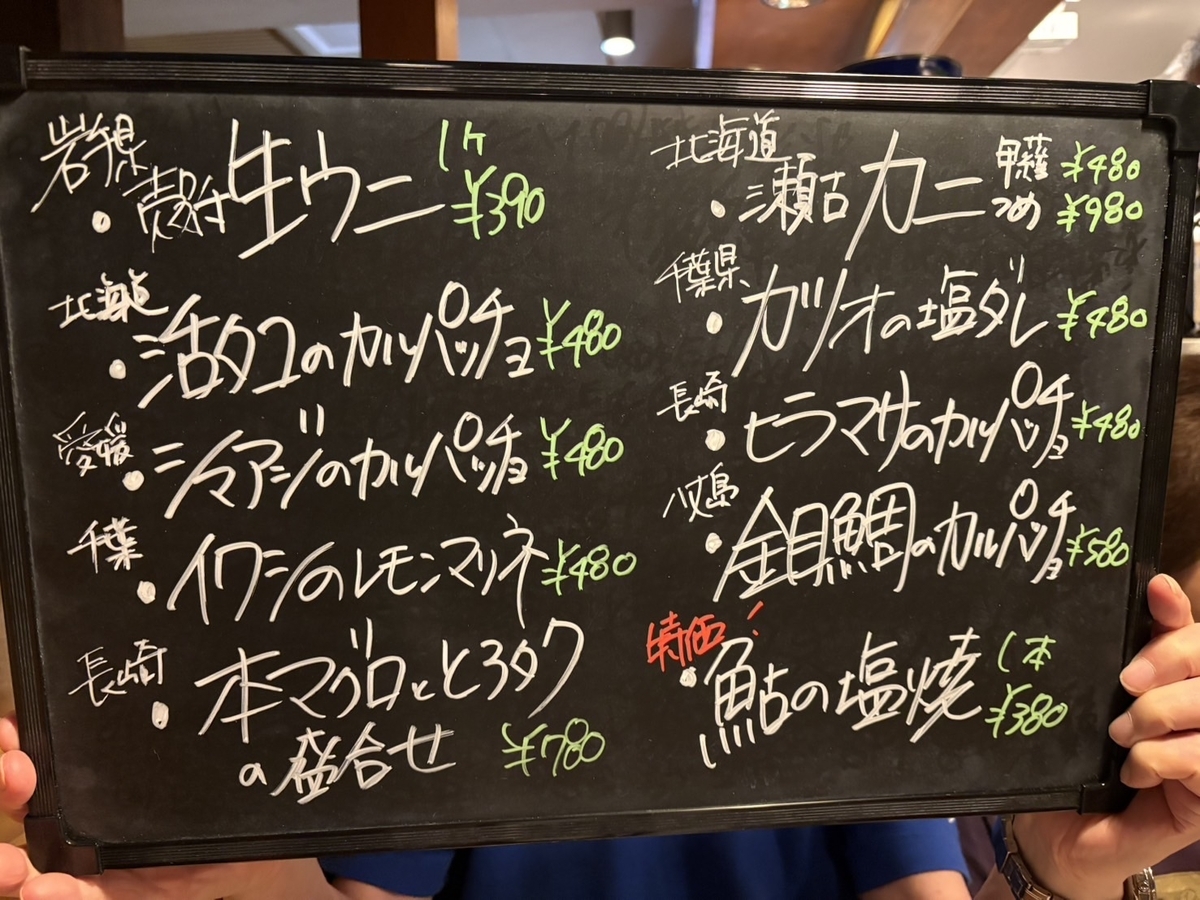 岩手県
・殻付生ウニ 1ケ ¥390
北海道
・活タコのカルパッチョ ¥480
愛媛
・シマアジのカルパッチョ ¥480
千葉
・イワシのレモンマリネ ¥480
長崎
・本マグロととろタク
の盛合せ ¥780
北海道
・瀬古カニ 甲羅 ¥480
つめ ¥980
千葉県
・カツオの塩ダレ ¥480
長崎
・ヒラマサのカルパッチョ ¥480
八丈島
・金目鯛のカルパッチョ ¥580
特価!
・鮎の塩焼 1本
¥380